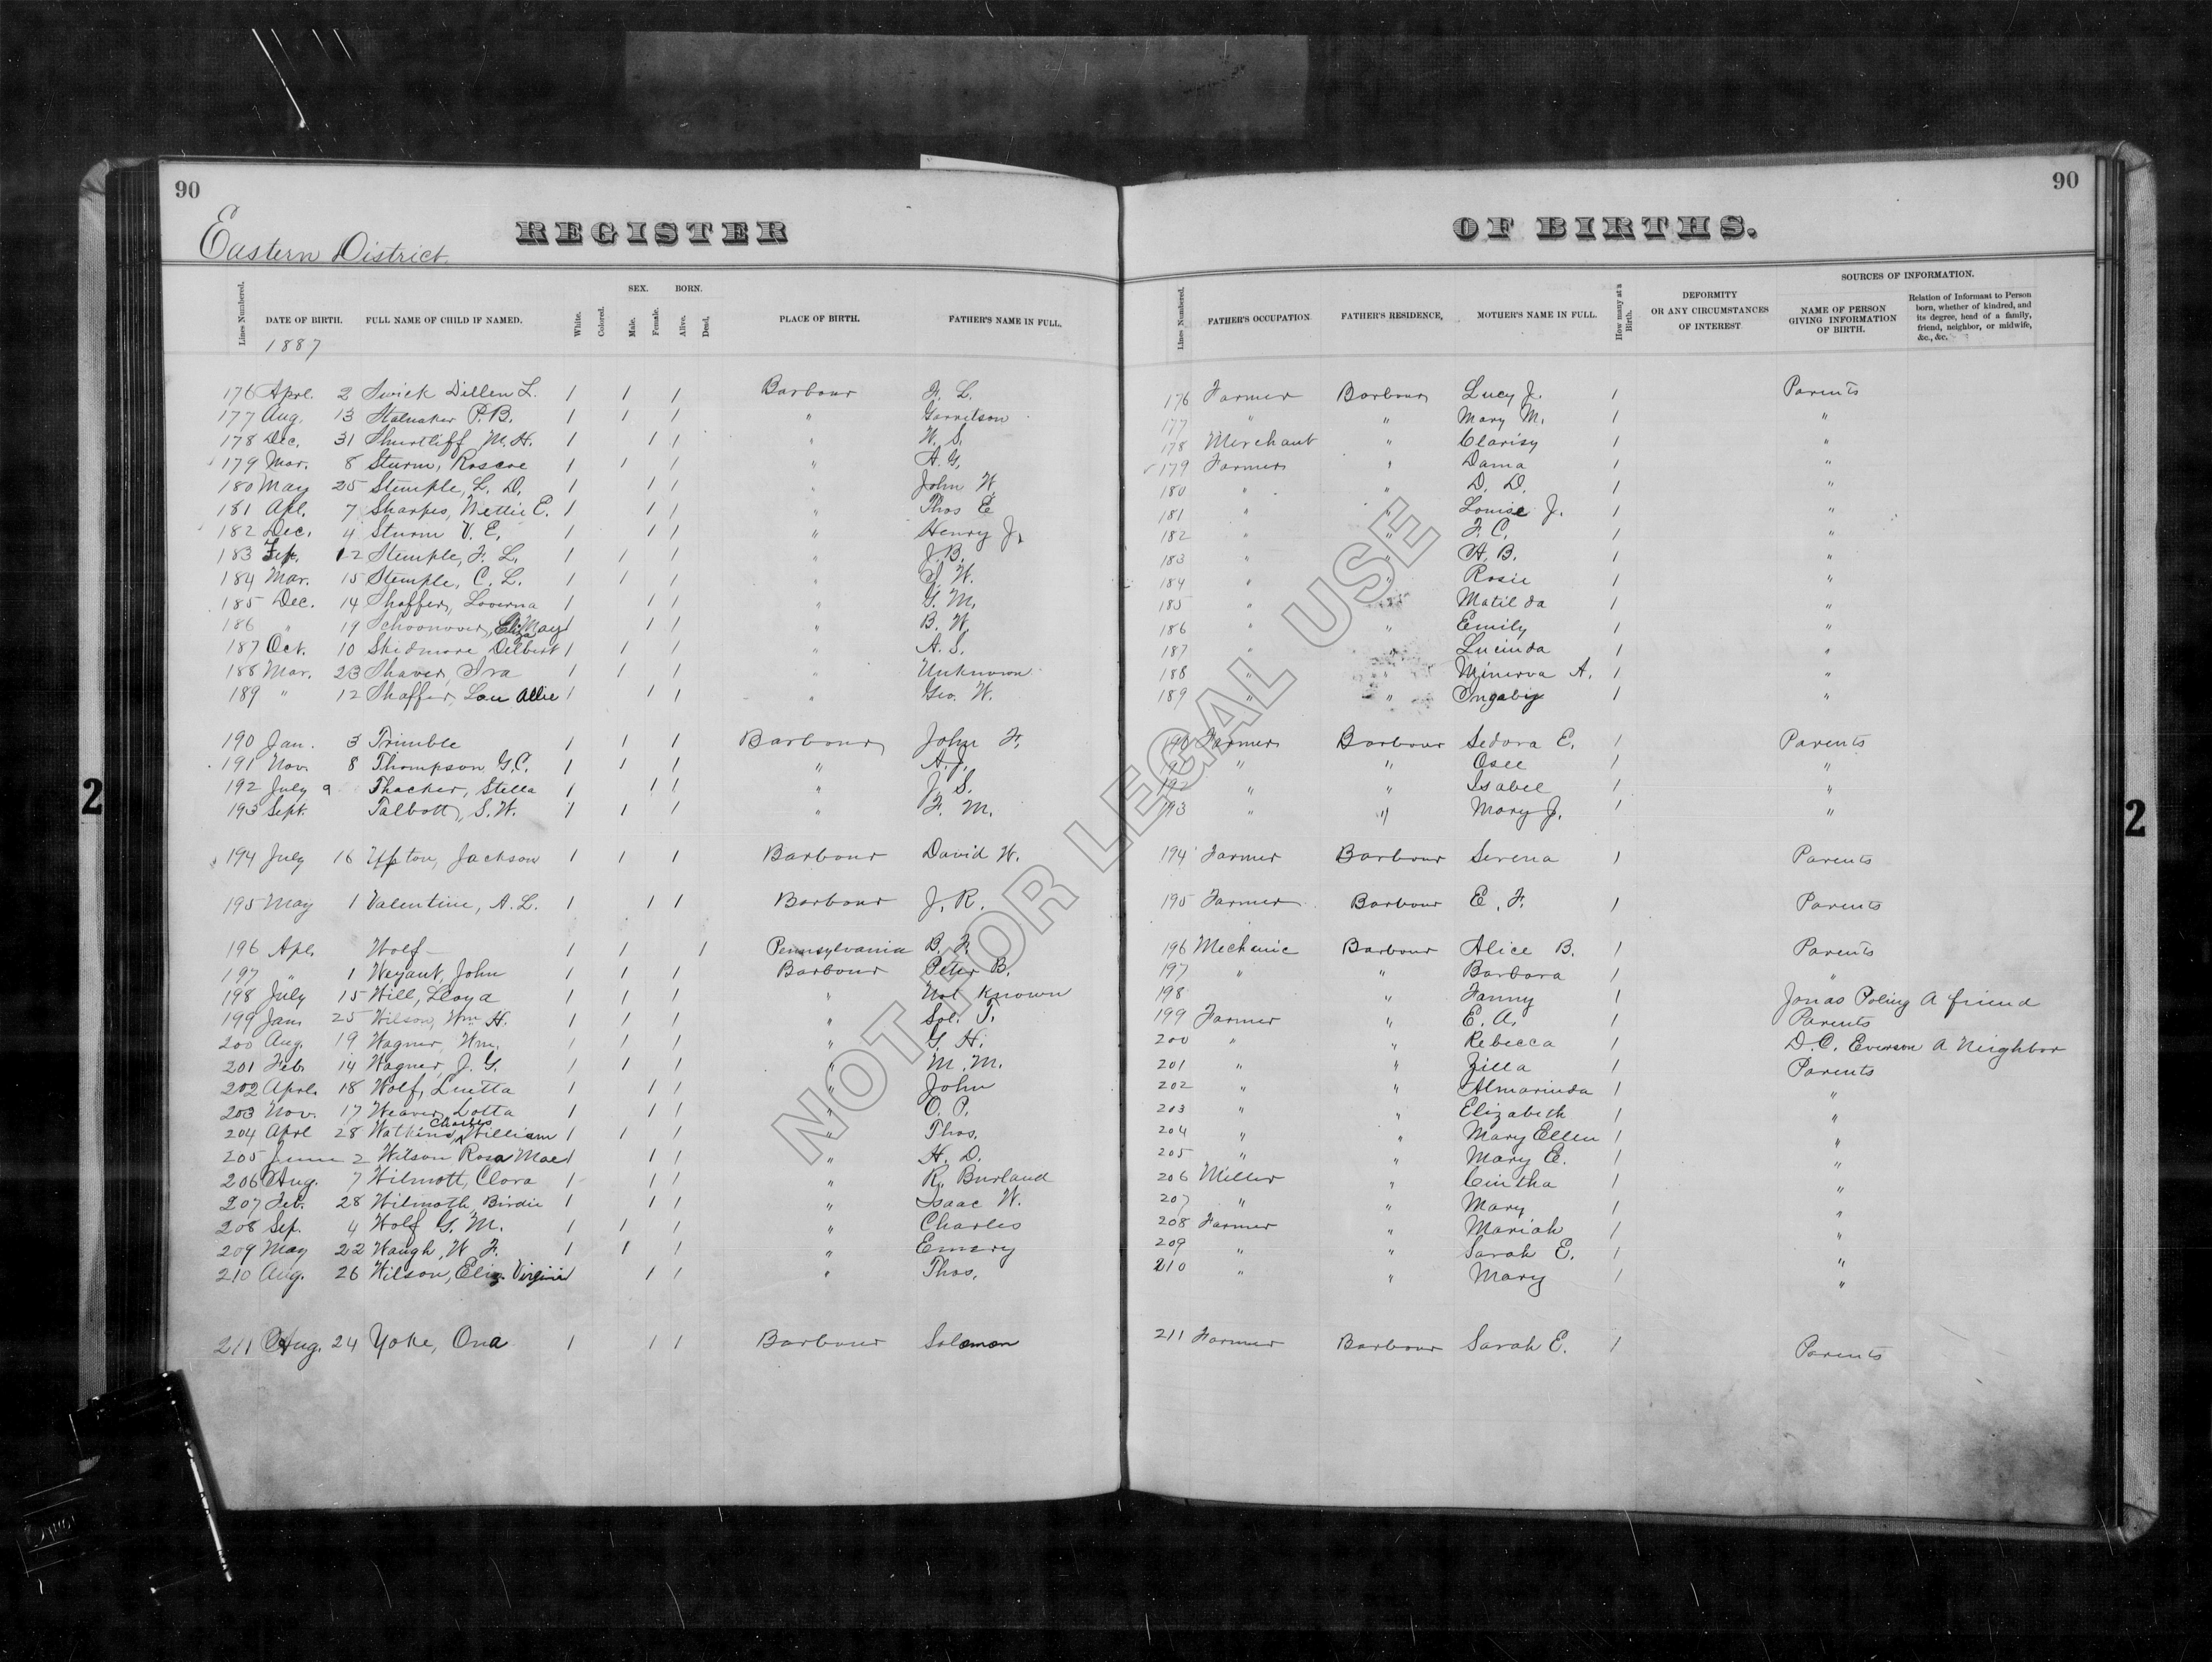 90
90
Eastern District
REGISTER
OF BIRTHS.
Lines Numbered. DATE OF BIRTH. FULL NAME OF CHILD IF NAMED. White. Colored. SEX. Male. Female. BORN. Alive. Dead. PLACE OF BIRTH. FATHER'S NAME IN FULL.
Lines Numbered. FATHER'S OCCUPATION. FATHER'S RESIDENCE, MOTHER'S NAME IN FULL. How many at a Birth. DEFORMITY OR ANY CIRCUMSTANCES OF INTEREST SOURCES OF INFORMATION. NAME OF PERSON GIVING INFORMATION OF BIRTH. Relation of Informant to Person born, whether of kindred, and its degree, head of a family, friend, neighbor, or midwife, &c., &c.
1887
176 Apre. 2 Swick Dillen L. 1 1 1 Barbour F. L. 176 Farmer Barbour Lucy J. 1 Parents
177 Aug. 13 Stalnaker P. B. 1 1 1 " Garretson 177 " " Mary M. 1 "
178 Dec. 31 Shurtliff M. H. 1 1 1 " W. S. 178 Merchant " Clarisy 1 "
179 Mar. 8 Sturm, Roscoe 1 1 1 " A. G. 179 Farmer " Dama 1 "
180 May 25 Stemple, L. D. 1 1 1 " John W. 180 " " D. D. 1 "
181 Apl. 7 Sharpes, Nettie E. 1 1 1 " Thos E 181 " " Louise J. 1 "
182 Dec. 4 Sturm V. E. 1 1 1 " Henry J. 182 " " F. C. 1 "
183 12 Stemple, F. L. 1 1 1 " J. B. 183 " " A. B. 1 "
184 Mar. 15 Stemple, C. L. 1 1 1 " W. 184 " " Rosie 1 "
185 Dec. 14 Shaffer, Loverna 1 1 1 " G. M. 185 " Matilda 1 "
186 " 19 Schoonover, Eliza May 1 1 1 " B. W. 186 " " Emily 1 "
187 Oct. 10 Skidmore Delbert 1 1 1 " A. S. 187 " " Lucinda 1 "
188 Mar. 23 Shaver, Ira 1 1 1 " Unknown 188 " " Minerva A. 1 "
189 " 12 Shaffer, Lou Allie 1 1 1 " Geo. W. 189 " " Ingaby 1 "
190 Jan. 3 Trimble 1 1 1 Barbour John F. 190 Farmer Barbour Sedora E. 1 Parents
191 Nov. 8 Thompson G. C. 1 1 1 " A. J. 191 " " Osee 1 "
192 July 9 Thacker, Stella 1 1 1 " J. S. 192 " " Isabel 1 "
193 Sept. Talbott, S. W. 1 1 1 " F. M. 193 " " Mary J. 1 "
194 July 16 Upton, Jackson 1 1 1 Barbour David W. 194 Farmer Barbour Serena 1 Parents
195 May 1 Valentine, A. L. 1 1 1 Barbour J. R. 195 Farmer Barbour E. F. 1 Parents
196 Apl. Wolf 1 1 1 Pennsylvania B. F. 196 Mechanic Barbour Alice B. 1 Parents
197 " 1 Weyant, John 1 1 1 Barbour Peter B. 197 " " Barbara 1 "
198 July 15 Will, Lloyd 1 1 1 " Not Known 198 " Fanny 1 Jonas Poling A friend
199 Jan 25 Wilson, Wm. H. 1 1 1 " Sol. T. 199 Farmer " E. A. 1 Parents
200 Aug. 19 Wagner, Wm. 1 1 1 " G. H. 200 " " Rebecca 1 D. C. Everson A Neighbor
201 Feb. 14 Wagner, J. G. 1 1 1 " M. M. 201 " " Zilla 1 Parents
202 Apre. 18 Wolf, Luetta 1 1 1 " John 202 " " Almarinda 1 "
203 Nov. 17 Weaver, Lotta 1 1 1 " O. P. 203 " " Elizabeth 1 "
204 Apre 28 Watkins, Charles William 1 1 1 " Thos. 204 " " Mary Ellen 1 "
205 June 2 Wilson Rosa Mae 1 1 1 " H. D. 205 " " Mary E. 1 "
206 Aug. 7 Wilmott, Clora 1 1 1 " R. Burland 206 Miller " Cintha 1 "
207 Feb. 28 Wilmoth, Birdie 1 1 1 " Isaac W. 207 " " Mary 1 "
208 Sep. 4 Wolf G. M. 1 1 1 " Charles 208 Farmer " Mariah 1 "
209 May 22 Waugh, W. F. 1 1 1 " Emery 209 " " Sarah E. 1 "
210 Aug. 26 Wilson, Eliz. Virginia 1 1 " Thos. 210 " " Mary 1 "
211 Aug. 24 Yoke, Ona 1 1 1 Barbour Solomon 211 Farmer Barbour Sarah E. 1 Parents
2
2
NOT FOR LEGAL USE